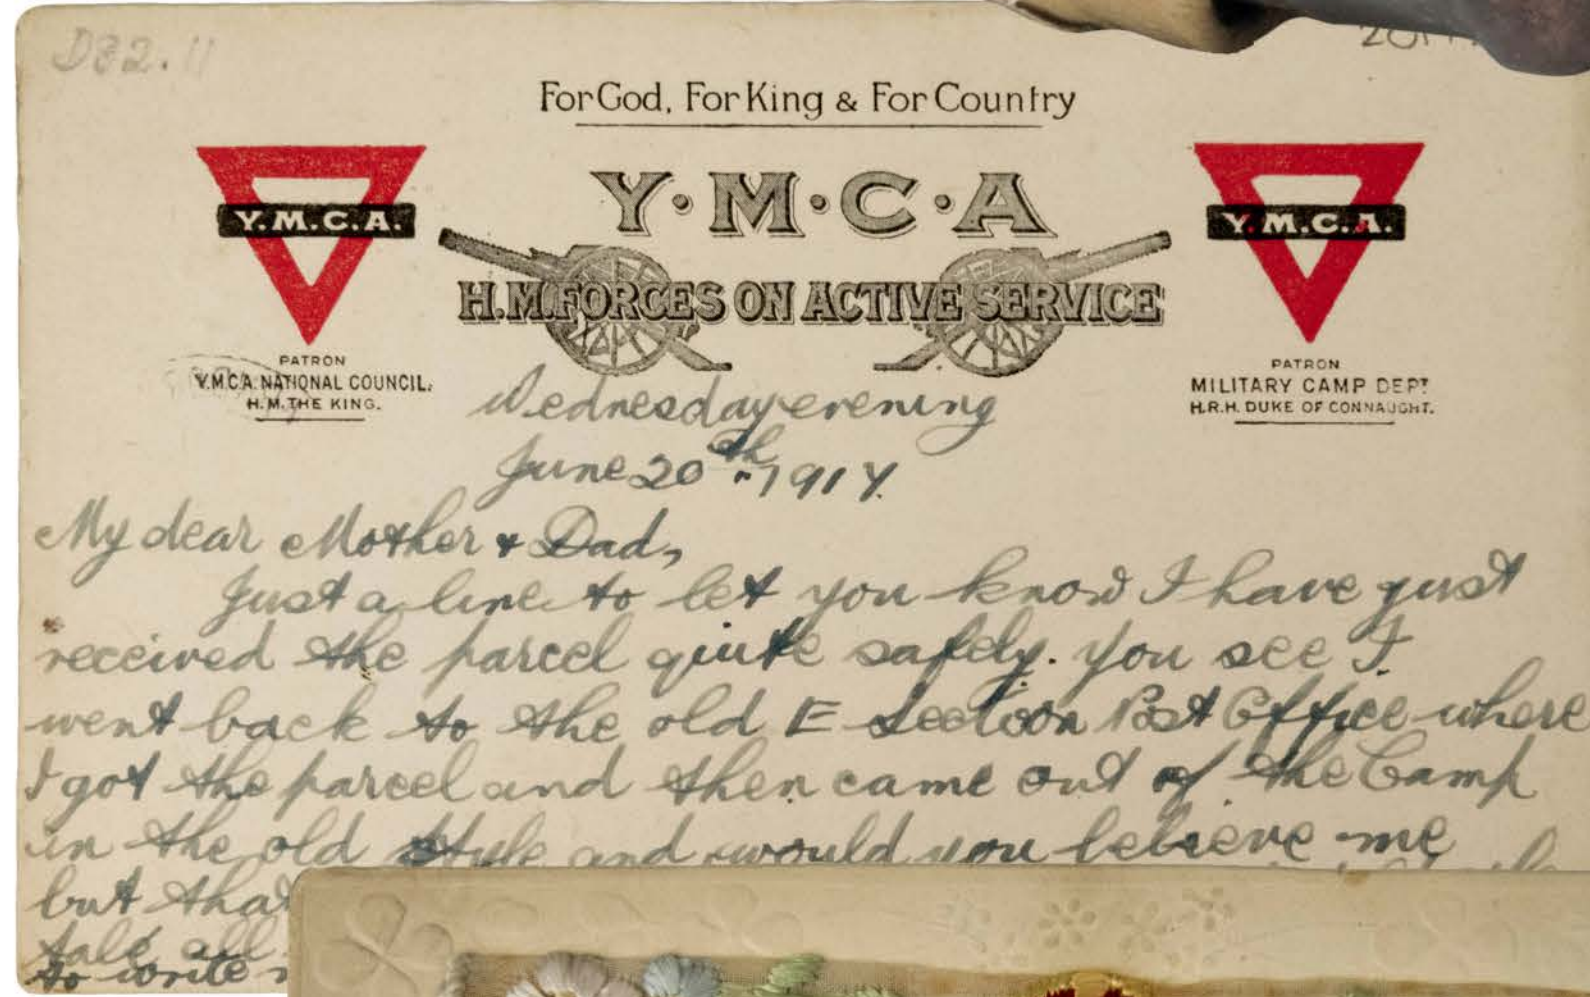 D82.11
For God, For King & For Country
Y·M·C·A
H.M. FORCES ON ACTIVE SERVICE
Y.M.C.A.
Y.M.C.A.
PATRON
Y.M.C.A. NATIONAL COUNCIL.
H.M. THE KING.
PATRON
MILITARY CAMP DEPT
H.R.H. DUKE OF CONNAUGHT.
Wednesday evening
June 20th 1917.
My dear Mother & Dad,
Just a line to let you know I have just
received the parcel quite safely. You see I
went back to the old E Section Post Office where
I got the parcel and then came out of the Camp
in the old style and would you believe me
but that
all
to write